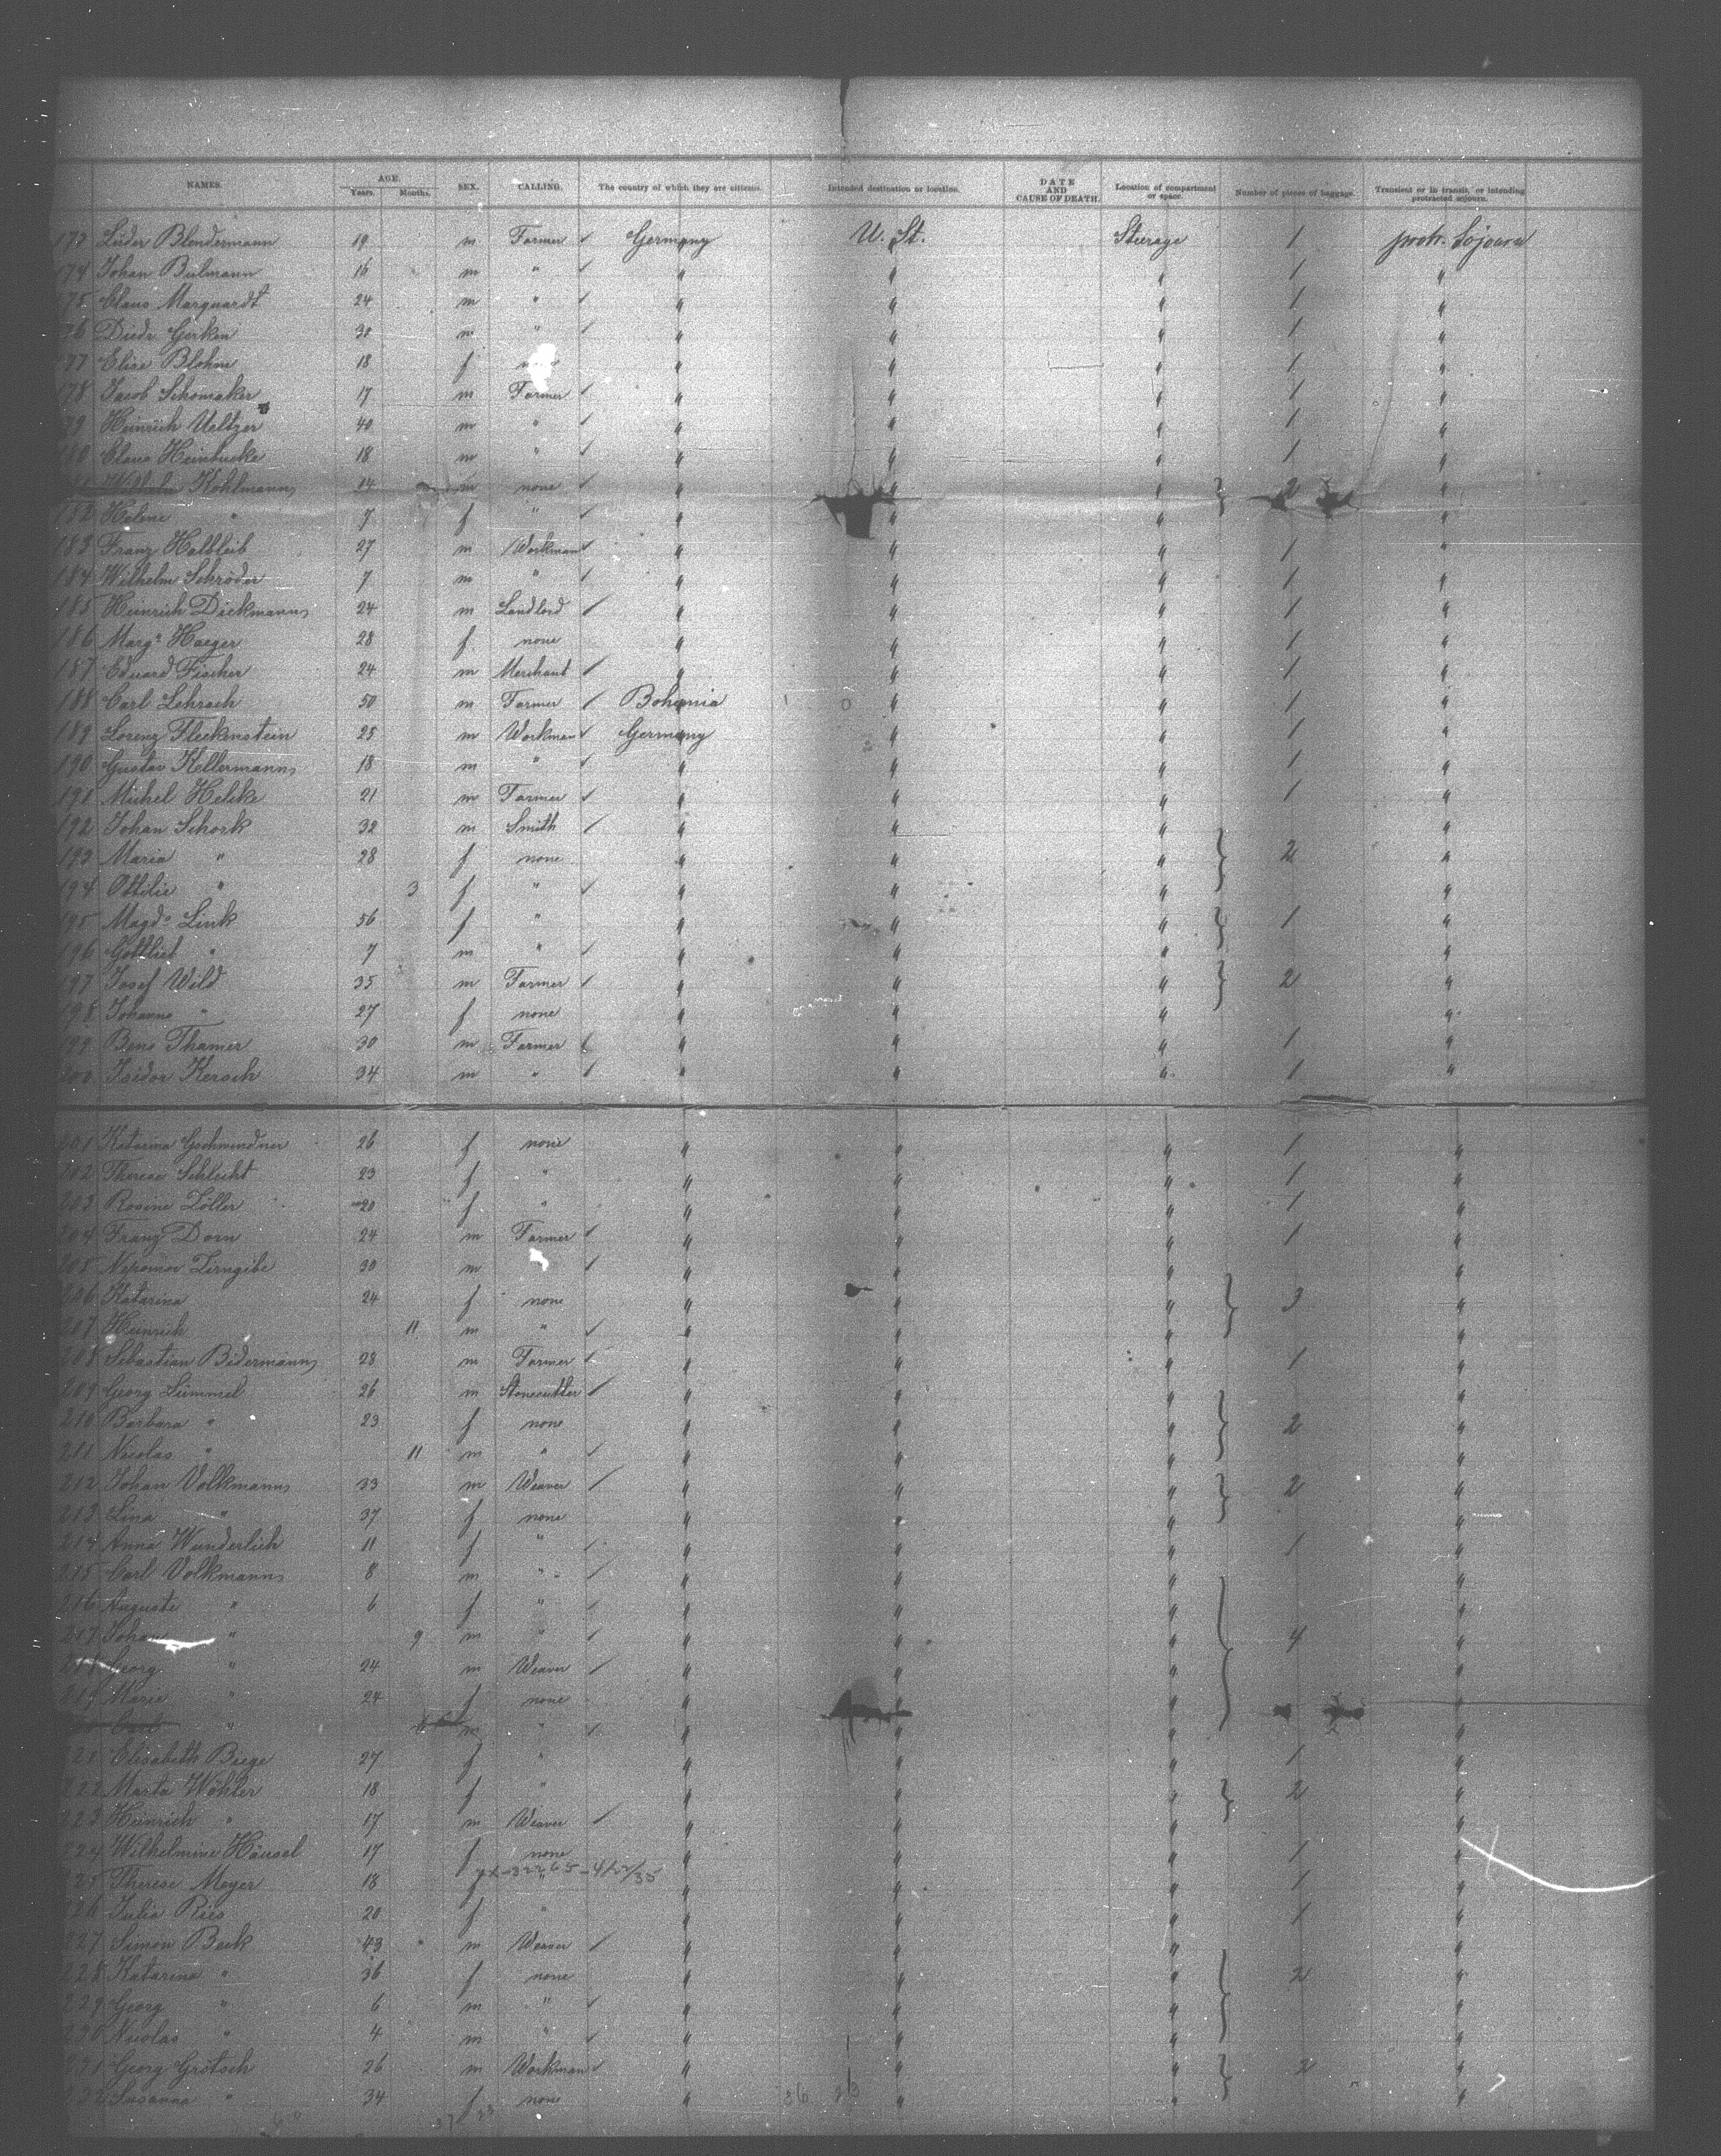 NAMES. AGE. Years. Months. SEX. CALLING. The country of which they are citizens. Intended destination or location. DATE AND CAUSE OF DEATH. Location of compartment or space. Number of pieces of baggage. Transient or in transit, or intending protracted sojourn.
173 Lüder Blendermann 19 m Farmer ✓ Germany U. St. Steerage 1 protr. Sojourn
174 Johan Bulmann 16 m " ✓ " " " 1 "
175 Claus Marquardt 24 m " ✓ " " " 1 "
176 Diedr Gerken 30 m " ✓ " " " 1 "
177 Elise Blohm 18 f " " " 1 "
178 Jacob Schomaker 17 m Farmer ✓ " " " 1 "
179 Heinrich Ueltzer 40 m " ✓ " " " 1 "
180 Claus Heinbucke 18 m " ✓ " " " 1 "
Wilhelm Kohlmann 14 m none ✓ " " " 2 "
182 Helene " 7 f " ✓ " " " "
183 Franz Halbleib 27 m Workman ✓ " " " 1 "
184 Wilhelm Schröder 7 m " ✓ " " " 1 "
185 Heinrich Dickmann 24 m Landlord ✓ " " " 1 "
186 Marg. Haeger 28 f none " " " 1 "
187 Eduard Fischer 24 m Merchant ✓ " " " 1 "
188 Carl Lehrach 50 m Farmer ✓ Bohemia " " 1 "
189 Lorenz Fleckenstein 25 m Workman ✓ Germany " " 1 "
190 Gustav Kellermann 18 m " ✓ " " " 1 "
191 Michel Helcke 21 m Farmer ✓ " " " 1 "
192 Johan Schork 32 m Smith ✓ " " " "
193 Maria " 28 f none " " " 2 "
194 Ottilie " 3 f " ✓ " " " "
195 Magd. Link 56 f " " " " 1 "
196 Gottlieb " 7 m " ✓ " " " "
197 Josef Wild 35 m Farmer ✓ " " " 2 "
198 Johanna " 27 f none " " " "
199 Beno Thamer 30 m Farmer ✓ " " " 1 "
200 Isidor Kersch 34 m " ✓ " " " 1 "
201 Katarina Gschwendner 26 f none " " " 1 "
202 Therese Schlecht 23 f " " " " 1 "
203 Rosine Zöller 20 f " " " " 1 "
204 Franz Dorn 24 m Farmer ✓ " " " 1 "
205 Nepomor Zirngibe 30 m ✓ " " " "
206 Katarina 24 f none " " " 3 "
207 Heinrich 11 m " ✓ " " " "
208 Sebastian Bidermann 28 m Farmer ✓ " " " 1 "
209 Georg Lümmel 26 m Stonecutter ✓ " " " "
210 Barbara " 23 f none " " " 2 "
211 Nicolas " 11 m " ✓ " " " "
212 Johan Volkmann 33 m Weaver ✓ " " " 2 "
213 Lina " 37 f none " " " "
214 Anna Wunderlich 11 f " ✓ " " " 1 "
215 Carl Volkmann 8 m " ✓ " " " "
216 Auguste " 6 f " ✓ " " " "
217 Johan " 9 m " ✓ " " " 4 "
218 Georg " 24 m Weaver ✓ " " " "
219 Marie " 24 f none " " " "
Carl " 6 m " ✓ " " " "
221 Elisabeth Biege 27 f " " " " 1 "
222 Marta Wöhler 18 f " " " " 2 "
223 Heinrich " 17 m Weaver ✓ " " " "
224 Wilhelmine Hänsel 17 f none " " " 1 "
225 Therese Meyer 18 f " " " " 1 "
226 Julia Ries 20 f " " " " 1 "
227 Simon Beck 43 m Weaver ✓ " " " "
228 Katarina " 36 f none " " " 2 "
229 Georg " 6 m " ✓ " " " "
230 Nicolas " 4 m " ✓ " " " "
231 Georg Grötsch 26 m Workman ✓ " " " 2 "
232 Susanna " 34 f none " " " "